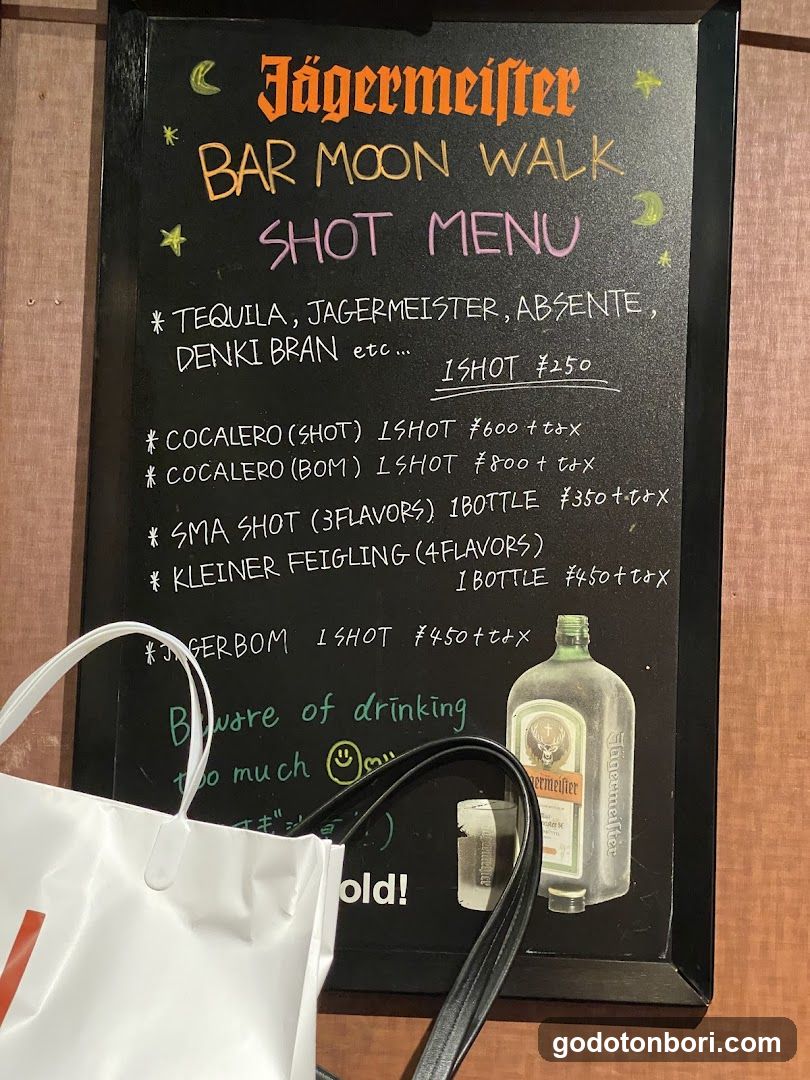 Jägermeister
BAR MOON WALK
SHOT MENU
* TEQUILA, JAGERMEISTER, ABSENTE,
DENKI BRAN etc...
1SHOT ¥250
* COCALERO (SHOT) 1SHOT ¥600+tax
* COCALERO (BOM) 1SHOT ¥800+tax
* SMA SHOT (3FLAVORS) 1BOTTLE ¥350+tax
* KLEINER FEIGLING (4FLAVORS)
1BOTTLE ¥450+tax
* JAGERBOM 1SHOT ¥450+tax
Beware of drinking
too much
old!
Jägermeister
Jägermeister
godotonbori.com